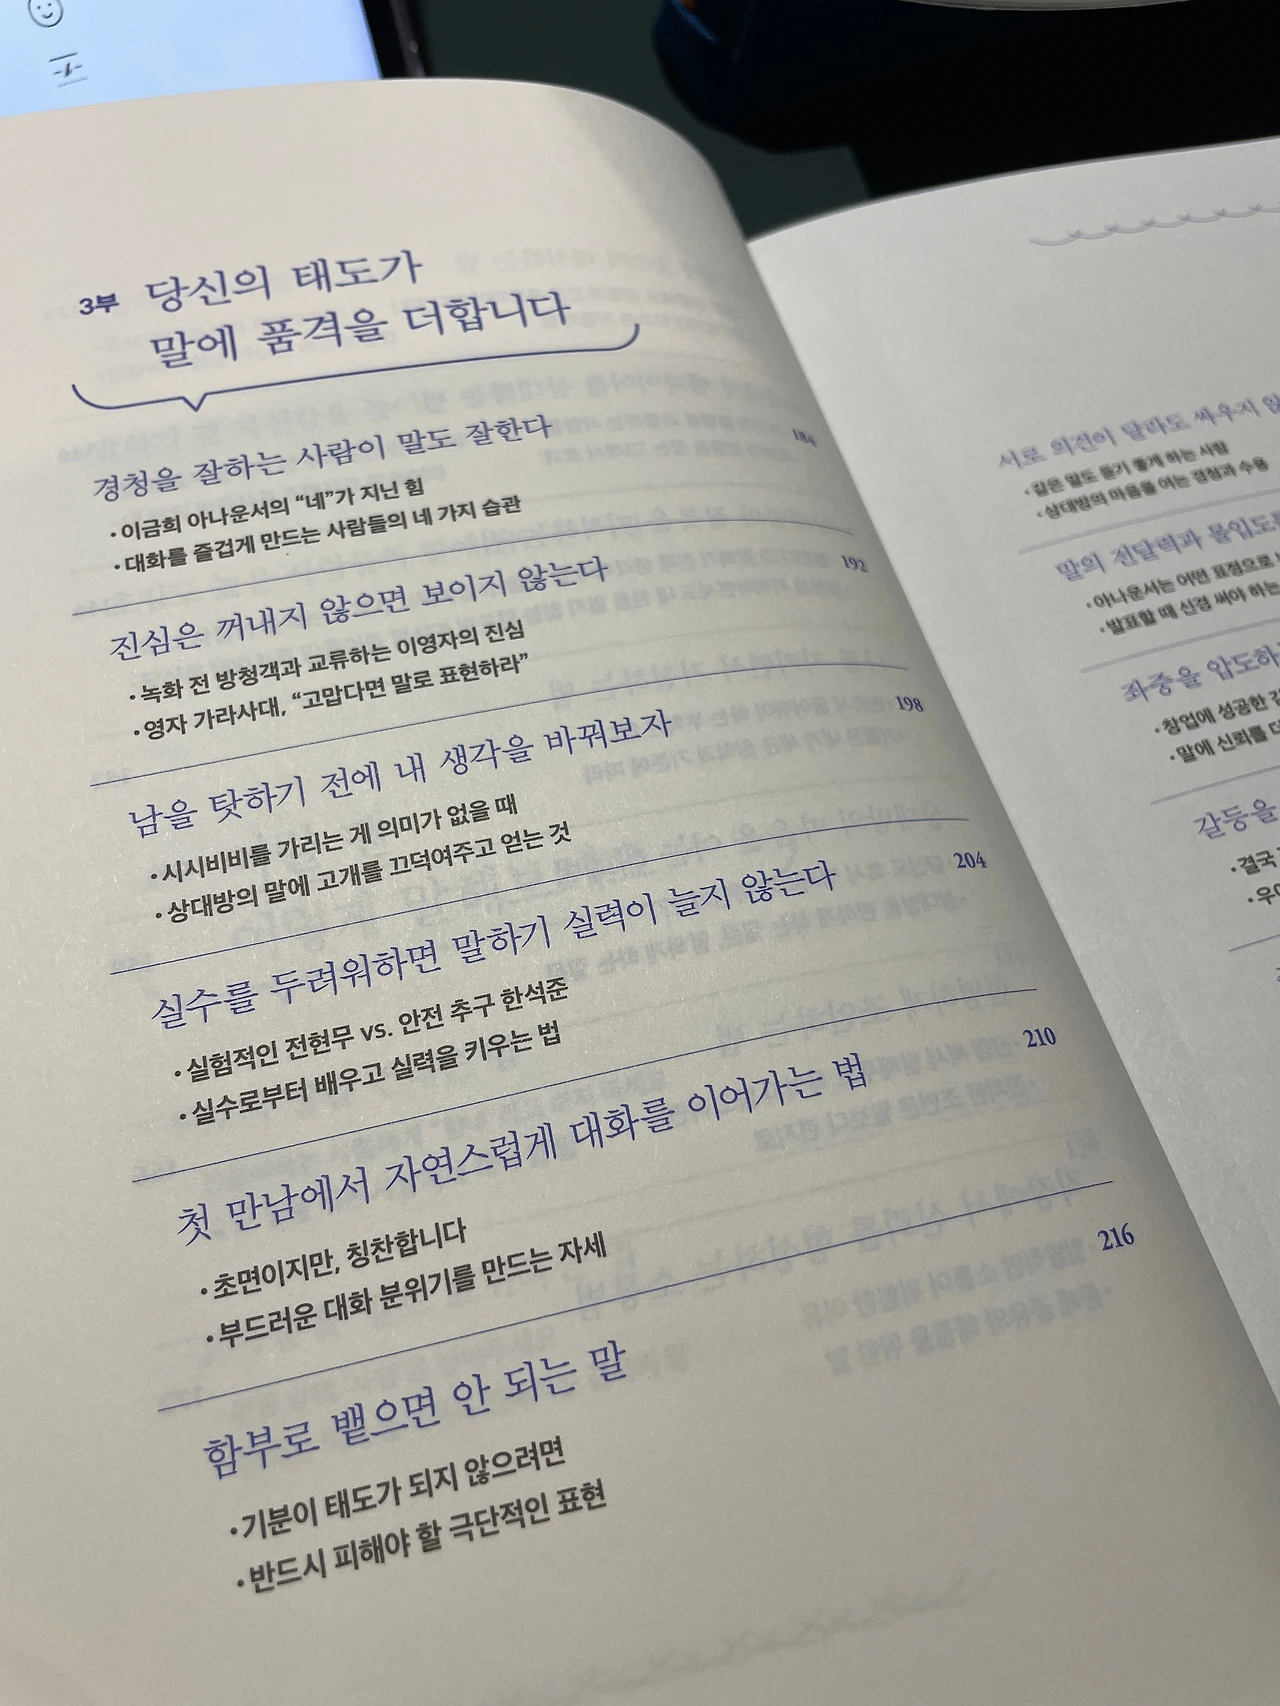 3부 당신의 태도가
말에 품격을 더합니다
경청을 잘하는 사람이 말도 잘한다 184
• 이금희 아나운서의 “네”가 지닌 힘
• 대화를 즐겁게 만드는 사람들의 네 가지 습관
진심은 꺼내지 않으면 보이지 않는다 192
• 녹화 전 방청객과 교류하는 이영자의 진심
• 영자 가라사대, “고맙다면 말로 표현하라”
남을 탓하기 전에 내 생각을 바꿔보자 198
• 시시비비를 가리는 게 의미가 없을 때
• 상대방의 말에 고개를 끄덕여주고 얻는 것
실수를 두려워하면 말하기 실력이 늘지 않는다 204
• 실험적인 전현무 vs. 안전 추구 한석준
• 실수로부터 배우고 실력을 키우는 법
첫 만남에서 자연스럽게 대화를 이어가는 법 210
• 초면이지만, 칭찬합니다
• 부드러운 대화 분위기를 만드는 자세
함부로 뱉으면 안 되는 말 216
• 기분이 태도가 되지 않으려면
• 반드시 피해야 할 극단적인 표현
서로 의견이 달라도 싸우지
• 같은 말도 듣기 좋게 하는 사람
• 상대방의 마음을 여는 경청과 수용
말의 전달력과 몰입도
• 아나운서는 어떤 표정으로
• 발표할 때 신경 써야 하는
좌중을 압도하
• 창업에 성공한
• 말에 신뢰를
갈등을
• 결국